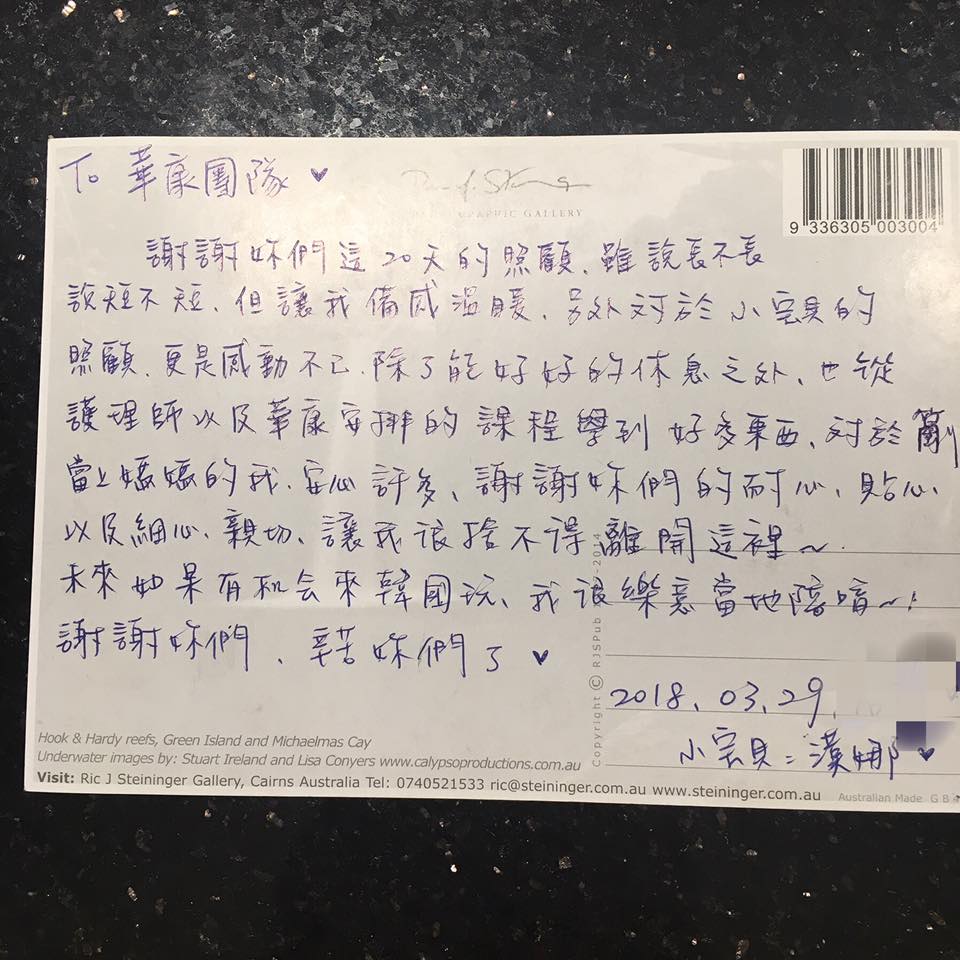 To 華康團隊 ♥
GRAPHIC GALLERY
9 336305 003004
謝謝妳們這20天的照顧、雖說長不長
說短不短、但讓我備感溫暖、另外対於小宝貝的
照顧、更是感動不已、除了能好好的休息之外、也從
護理師以及華康安排的課程學到好多東西、対於剛
當上媽媽的我、安心許多、謝謝妳們的耐心、貼心
以及細心、親切、讓我很捨不得離開這裡~
未來如果有机会來韓國玩、我很樂意當地陪唷~!
謝謝妳們、辛苦妳們了 ♥
Copyright © RJSPub 2014
2018.03.29.
小宝貝:漢娜 ♥
Hook & Hardy reefs, Green Island and Michaelmas Cay
Underwater images by: Stuart Ireland and Lisa Conyers www.calypsoproductions.com.au
Visit: Ric J Steininger Gallery, Cairns Australia Tel: 0740521533 ric@steininger.com.au www.steininger.com.au Australian Made G B